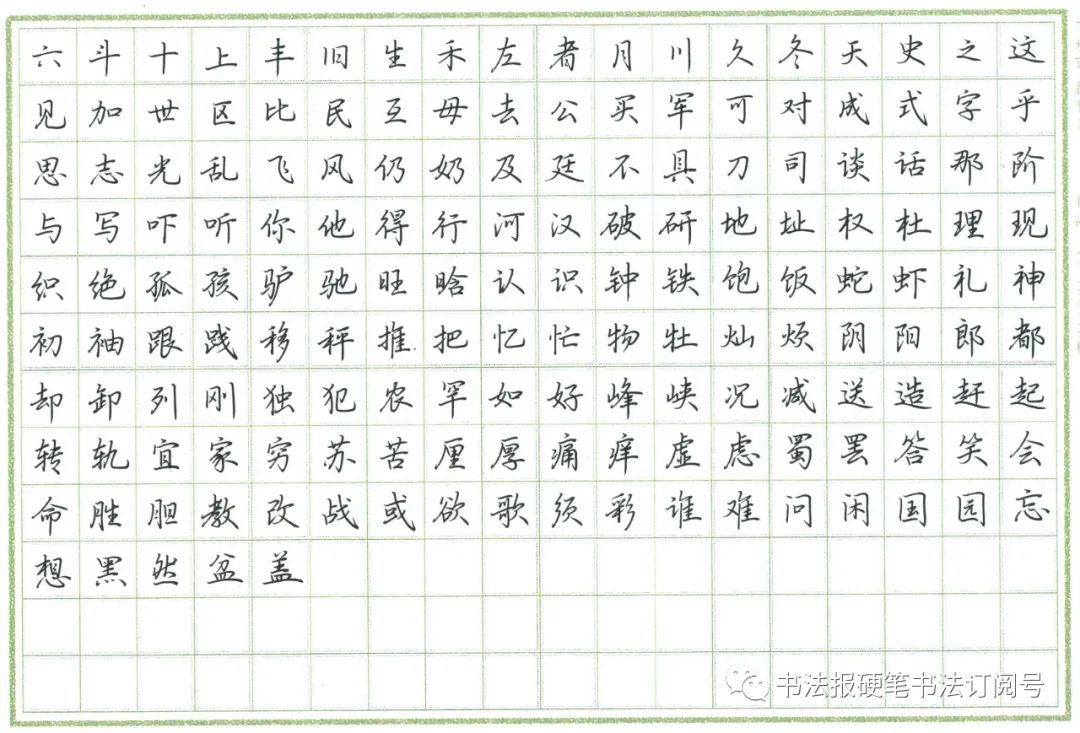 六斗十上丰旧生禾左者月川久冬天史之这
见加世区比民互毋去公买军可对成式字乎
思志光乱飞风仍奶及廷不具刀司谈话那阶
与写吓听你他得行河汉破研地址权杜理现
织绝孤孩驴驰旺晗认识钟铁饱饭蛇虾礼神
初袖跟践移秤推把忆忙物牡灿烦阴阳郎都
却卸列刚独犯农罕如好峰峡况减送造赶起
转轨宜家穷苏苦厘厚痛痒虚虑蜀罢答笑会
命胜胆教改战或欲歌须彩谁难问闲国园忘
想黑然盆盖
书法报硬笔书法订阅号